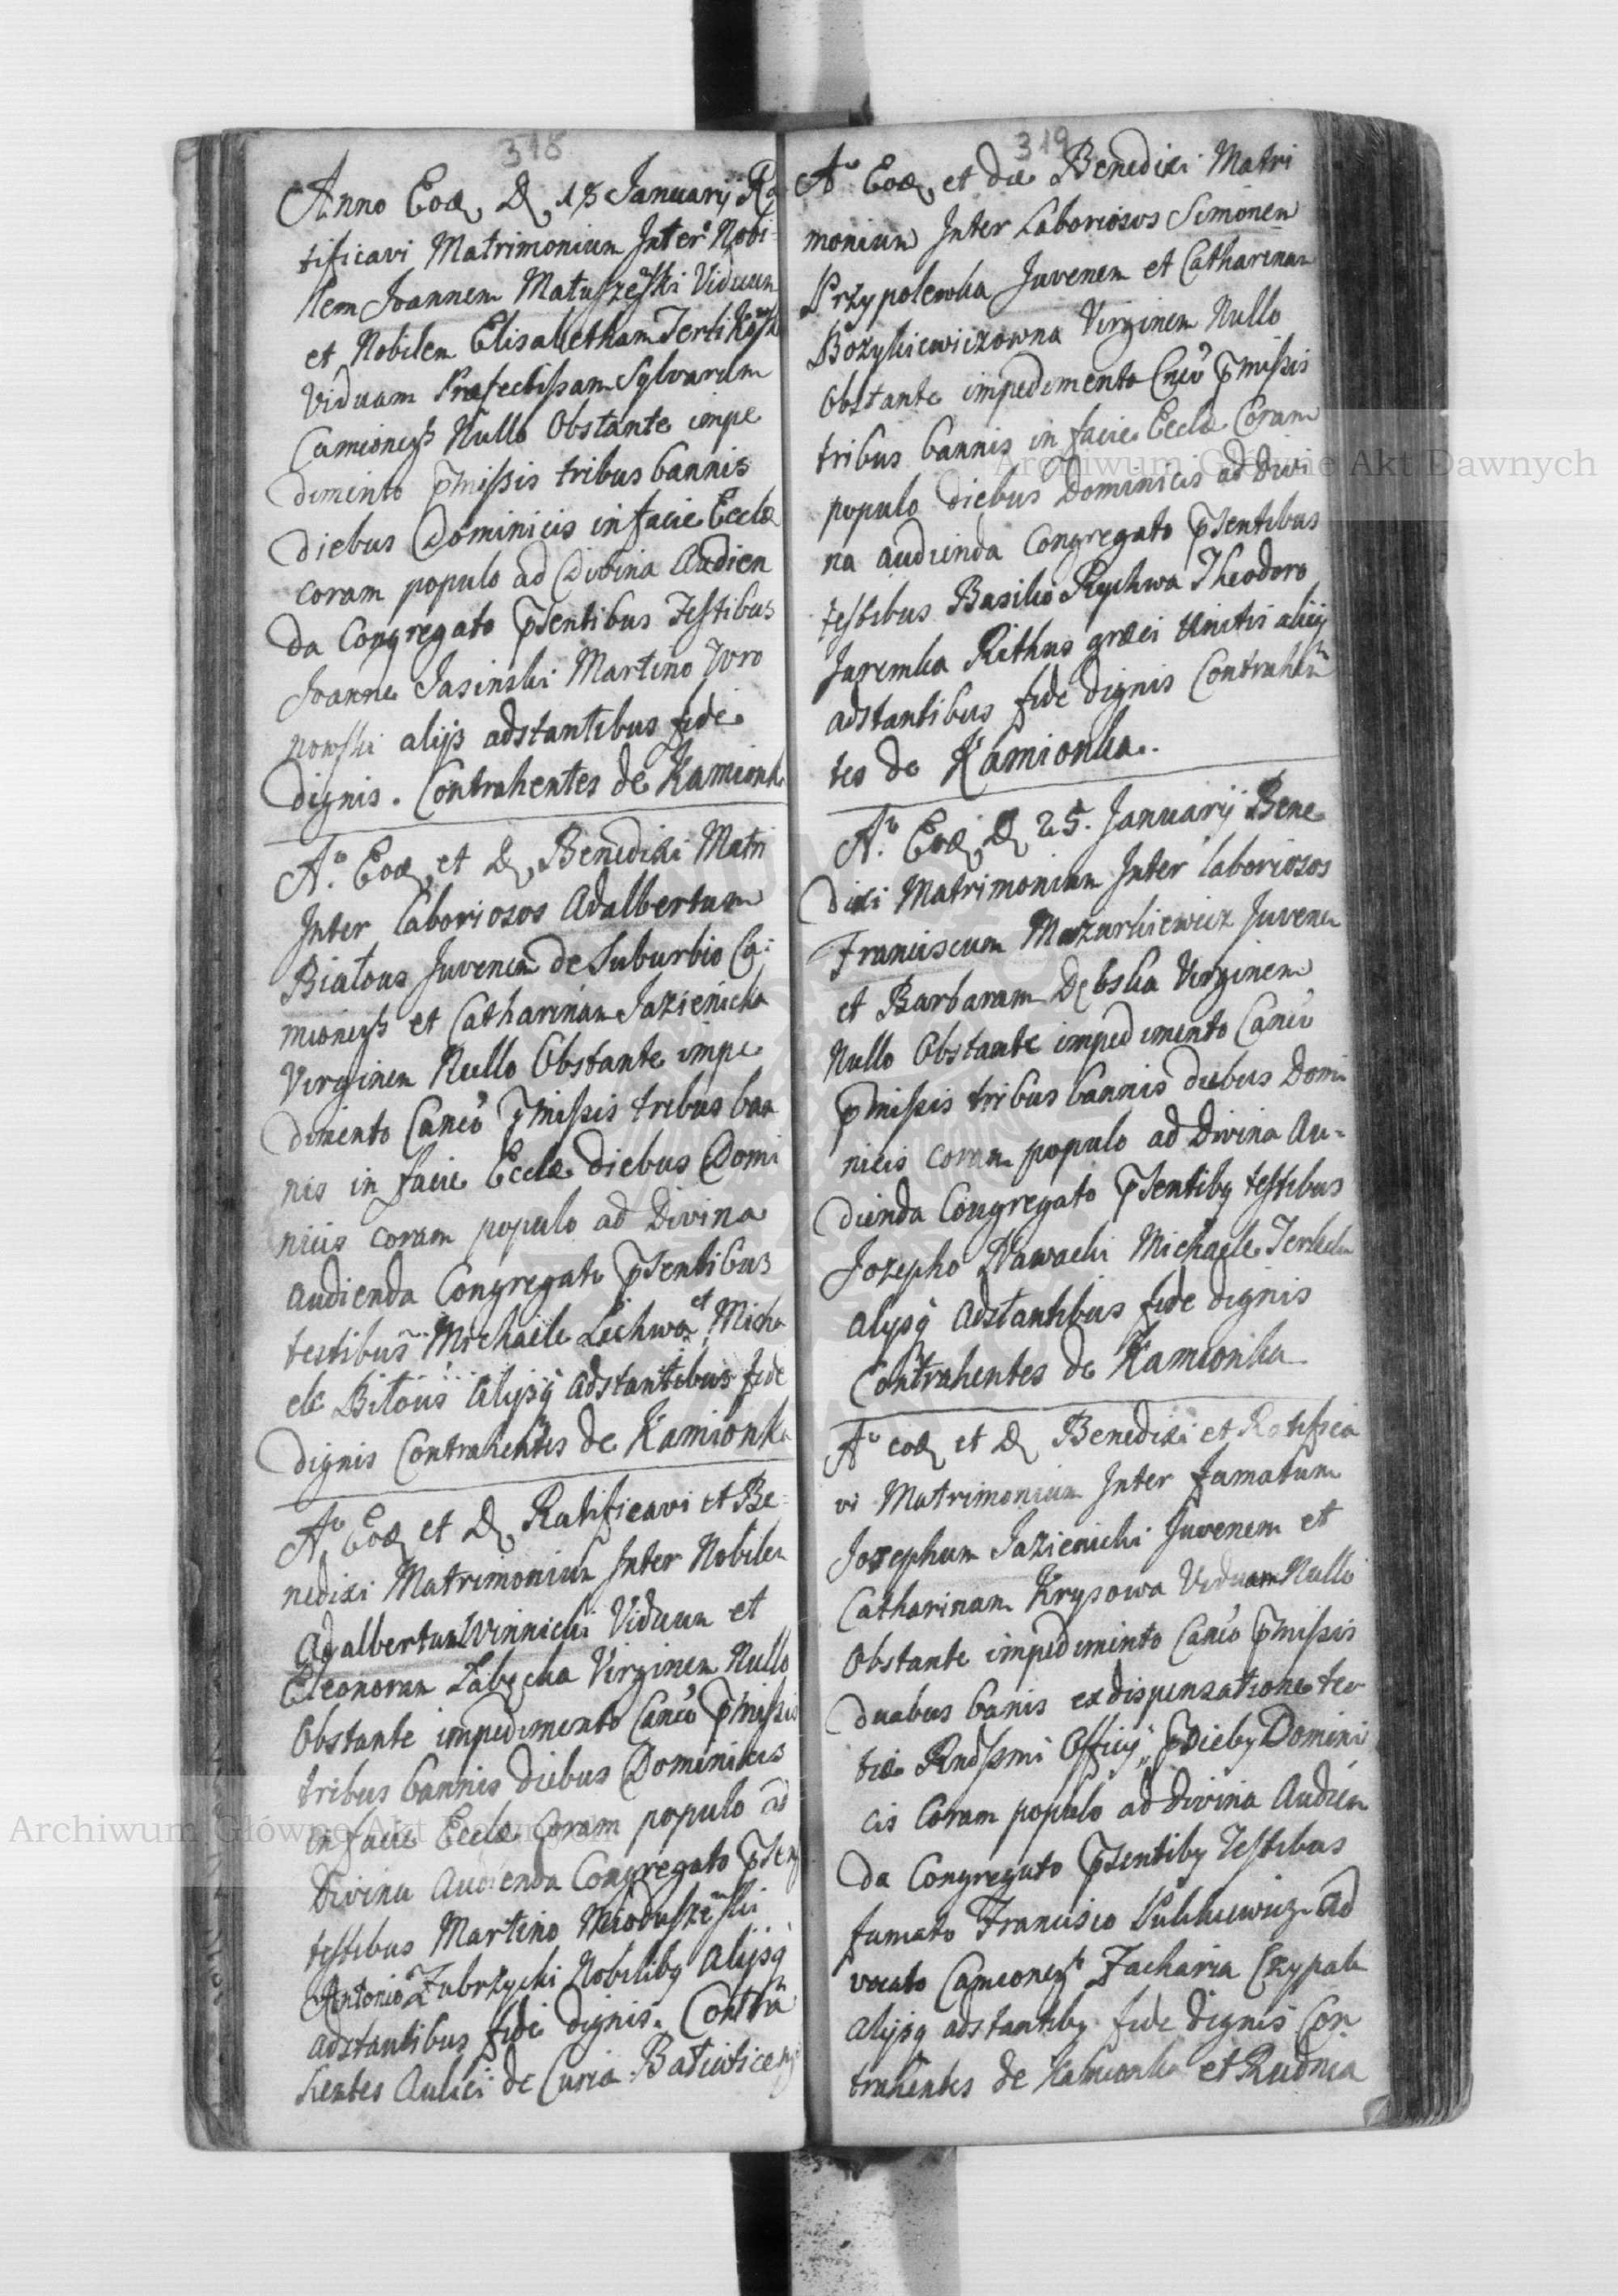 318
Anno Eod. D. 18 Januarij Ra
tificavi Matrimonium Inter Nobi
lem Joannem Matuszeski Viduum
et Nobilem Elisabetham
Viduam Praefectissam Sylvarum
Camionens Nullo Obstante impe
dimento pmissis tribus bannis
diebus Dominicis in facie Eccłæ
coram populo ad Divina Audien
da Congregato psentibus Testibus
Joanne Jasinski Martino Wro
nowski alijs adstantibus fide
dignis. Contrahentes de Kamionk
Ao. Eod, et D, Benedixi Matri
Inter laboriosos Adalbertum
Białous Juvenem de Suburbio Ca:
mionens et Catharinam Jazienicka
Virginem Nullo Obstante impe
dimento Canco pmissis tribus ban
nis in facie Eccłæ diebus Domi
nicis coram populo ad Divina
Audienda Congregato psentibus
testibus Michaele Lechwa et Micha
ele Biłous alijsq adstantibus fide
dignis Contrahentes de Kamionka
Ao Eod et D, Ratificavi et Be=
nedixi Matrimonium Inter Nobilem
Adalbertum Winnicki Viduum et
Eleonoram Zabęcka Virginem Nullo
Obstante impedimento Canco pmissis
tribus bannis diebus Dominicis
in facie Eccłæ Coram populo ad
Divina Audienda Congregato psenq
testibus Martino Mioduszeski
Antonio Zubrzycki Nobilibq alijsq
adstantibus fide dignis. Contra
hentes Aulici de Curia
319
Ao Eod, et die Benedixi Matri
monium Inter Laboriosos Simonem
Przypolewka Juvenem et Catharinam
Bozykiewiczowna Virginem Nullo
Obstante impedimento Cnco pmissis
tribus bannis in facie Eccłæ Coram
populo diebus Dominicis ad Divi
na audienda Congregato psentibus
testibus Basilio Rychwa Theodoro
Jaremka Rithus græci Unitis alijs
adstantibus fide dignis Contrahen
tes de Kamionka.
Ao. Eod, D, 25. Januarij Bene
dixi Matrimonium Inter laboriosos
Franciscum Mazurkiewicz Juvenem
et Barbaram Debska Virginem
Nullo Obstante impedimento Canco
pmissis tribus bannis diebus Domi
nicis coram populo ad Divina Au=
dienda Congregato psentibq testibus
Jozepho Nawacki Michaele
alijsq adstantibus fide dignis
Contrahentes de Kamionka
Ao eod et D Benedixi et Ratifica
vi Matrimonium Inter famatum
Jozephum Jazienicki Juvenem et
Catharinam Krysowa Viduam Nullo
Obstante impedimento Canco pmissis
duabus banis ex dispensatione ter
tiæ Rndssmi Officij, pdiebq Domini
cis Coram populo ad Divina Audien
da Congregato psentibq Testibus
famato Francisco Ad
vocato Camionens Zacharia Czypak
alijsq adstantibq fide dignis Con
trahentes de Kamionka et Rudnia
Archiwum Główne Akt Dawnych
Archiwum Główne Akt Dawnych